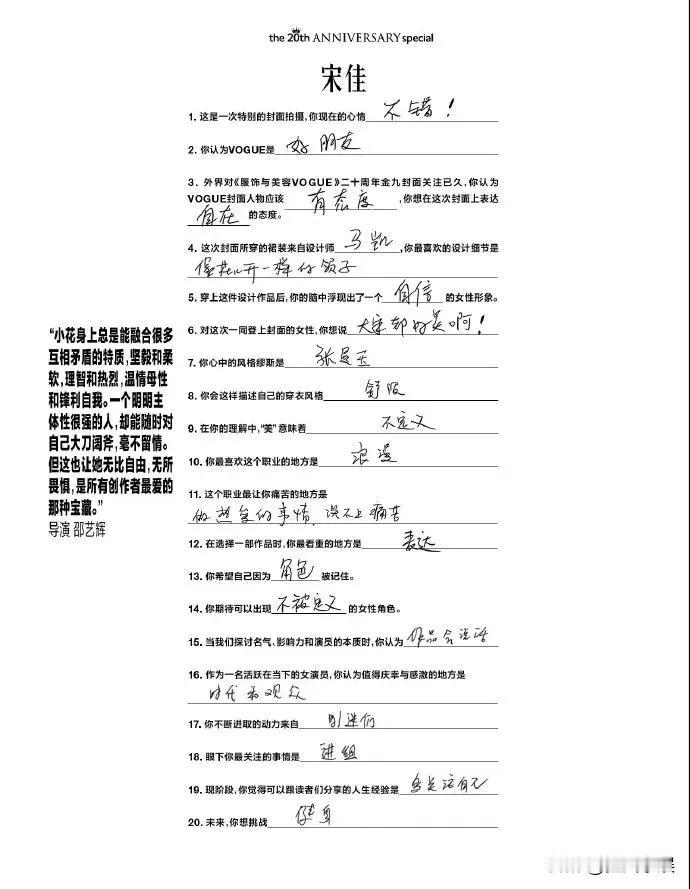 the 20th ANNIVERSARY special
宋佳
1. 这是一次特别的封面拍摄,你现在的心情 不错!
2. 你认为VOGUE是 好朋友
3. 外界对《服饰与美容VOGUE》二十周年金九封面关注已久,你认为
VOGUE封面人物应该 有态度 ,你想在这次封面上表达
自在 的态度。
4. 这次封面所穿的裙装来自设计师 马凯 ,你最喜欢的设计细节是
像花儿开一样的领子
5. 穿上这件设计作品后,你的脑中浮现出了一个 自信 的女性形象。
6. 对这次一同登上封面的女性,你想说 大家都好美啊!
7. 你心中的风格缪斯是 张曼玉
8. 你会这样描述自己的穿衣风格 舒服
9. 在你的理解中,“美”意味着 不定义
10. 你最喜欢这个职业的地方是 浪漫
11. 这个职业最让你痛苦的地方是
做想象的事情,谈不上痛苦
12. 在选择一部作品时,你最看重的地方是 表达
13. 你希望自己因为 角色 被记住。
14. 你期待可以出现 不被定义 的女性角色。
15. 当我们探讨名气、影响力和演员的本质时,你认为 作品会说话
16. 作为一名活跃在当下的女演员,你认为值得庆幸与感激的地方是
时代和观众
17. 你不断进取的动力来自 别迷们
18. 眼下你最关注的事情是 进组
19. 现阶段,你觉得可以跟读者们分享的人生经验是 多关注自己
20. 未来,你想挑战 健身
“小花身上总是能融合很多
互相矛盾的特质,坚毅和柔
软,理智和热烈,温情母性
和锋利自我。一个明明主
体性很强的人,却能随时对
自己大刀阔斧,毫不留情。
但这也让她无比自由,无所
畏惧,是所有创作者最爱的
那种宝藏。”
导演 邵艺辉